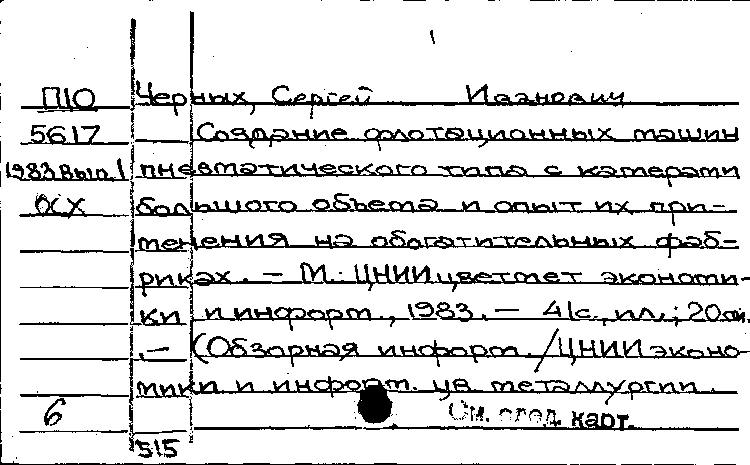 П10 Черных, Сергей Иванович
5617 Создание флотационных машин
1983 вып. 1 пневматического типа с камерами
большого объема и опыт их при-
менения на обогатительных фаб-
риках. – М.: ЦНИИцветмет экономи-
ки и информ., 1983. – 41с., ил.; 20 см.
.– (Обзорная информ. / ЦНИИ эконо-
мики и информ. цв. металлургии.
6 См. след. карт.
515